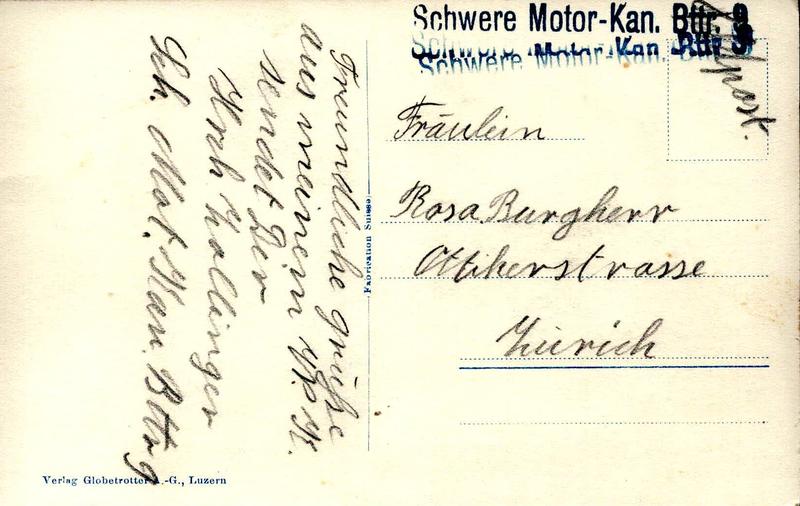 Schwere Motor-Kan. Bttr. 9
Schwere Motor-Kan. Bttr. 9
Schwere Motor-Kan.
Feldpost.
Fräulein
Rosa Burgherr
Ottikerstrasse
Zürich
Freundliche grüsse
aus meinem W. K.
sendet Der
Hrch. Hollinger
Sch. Mot. Kan. Bttr 9
Fabrication Suisse
Verlag Globetrotter A.-G., Luzern